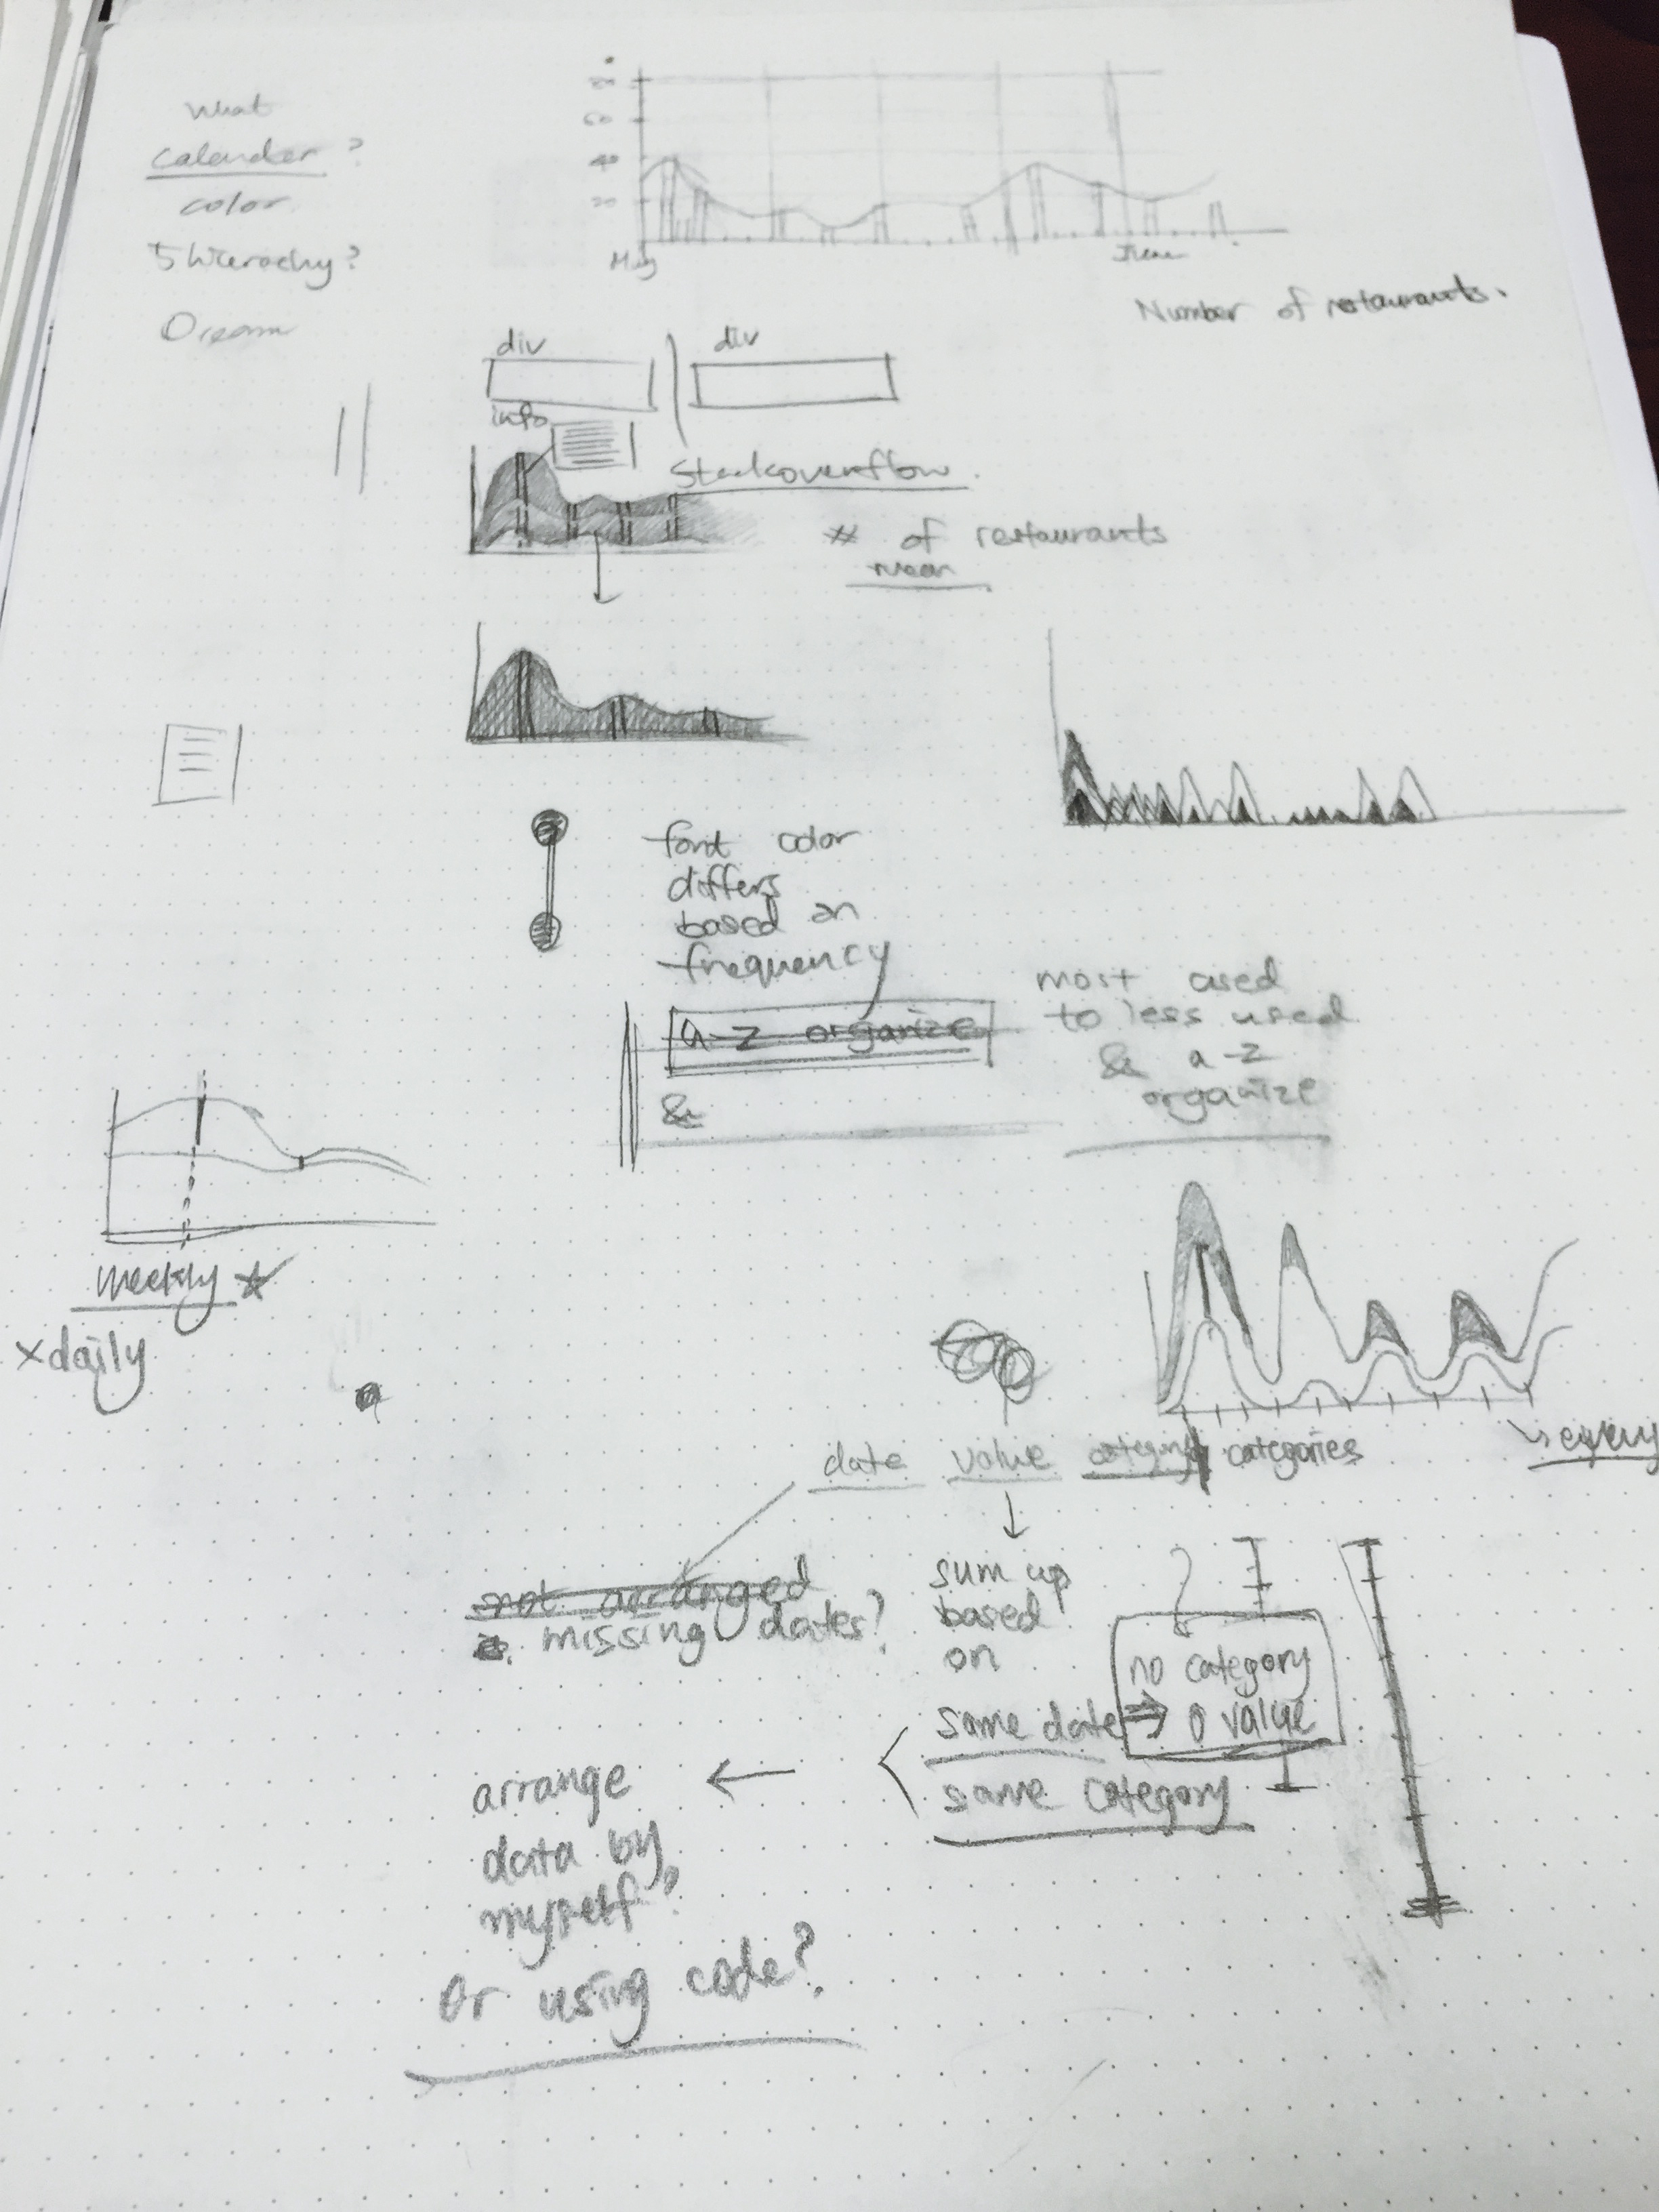 what
calender ?
color
5 hierachy?
60
40
20
May
June
Number of restaurants.
div
div
info
Stackoverflow
# of restaurants
near
font color
differs
based on
frequency
a-z organize
&
most used
to less used
& a-z
organize
weekly
x daily
date value category categories
not arranged
missing dates?
sum up
based
on
same date
same category
no category
0 value
arrange
data by
myself?
Or using code?